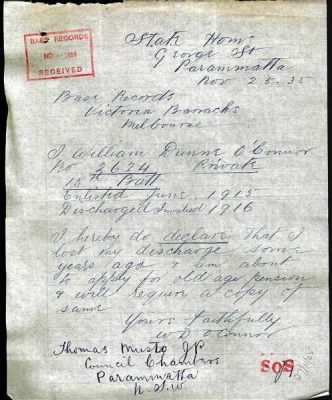 State Home
George St
Parammatta
Nov 25. 35
BASE RECORDS
NO 1935
RECEIVED
Base Records
Victoria Barracks
Melbourne
I William Dunne O'Connor
No 2624 Private
15th Batt
Enlisted June 1915
Discharged Invalid 1916
I hereby do declare that I
lost my discharge some
years ago & am about
to apply for old age pension
& will require a copy of
same
Yours Faithfully
W D O'Connor
Thomas Musto J.P.
Council Chambers
Parammatta
N.S.W
SOS